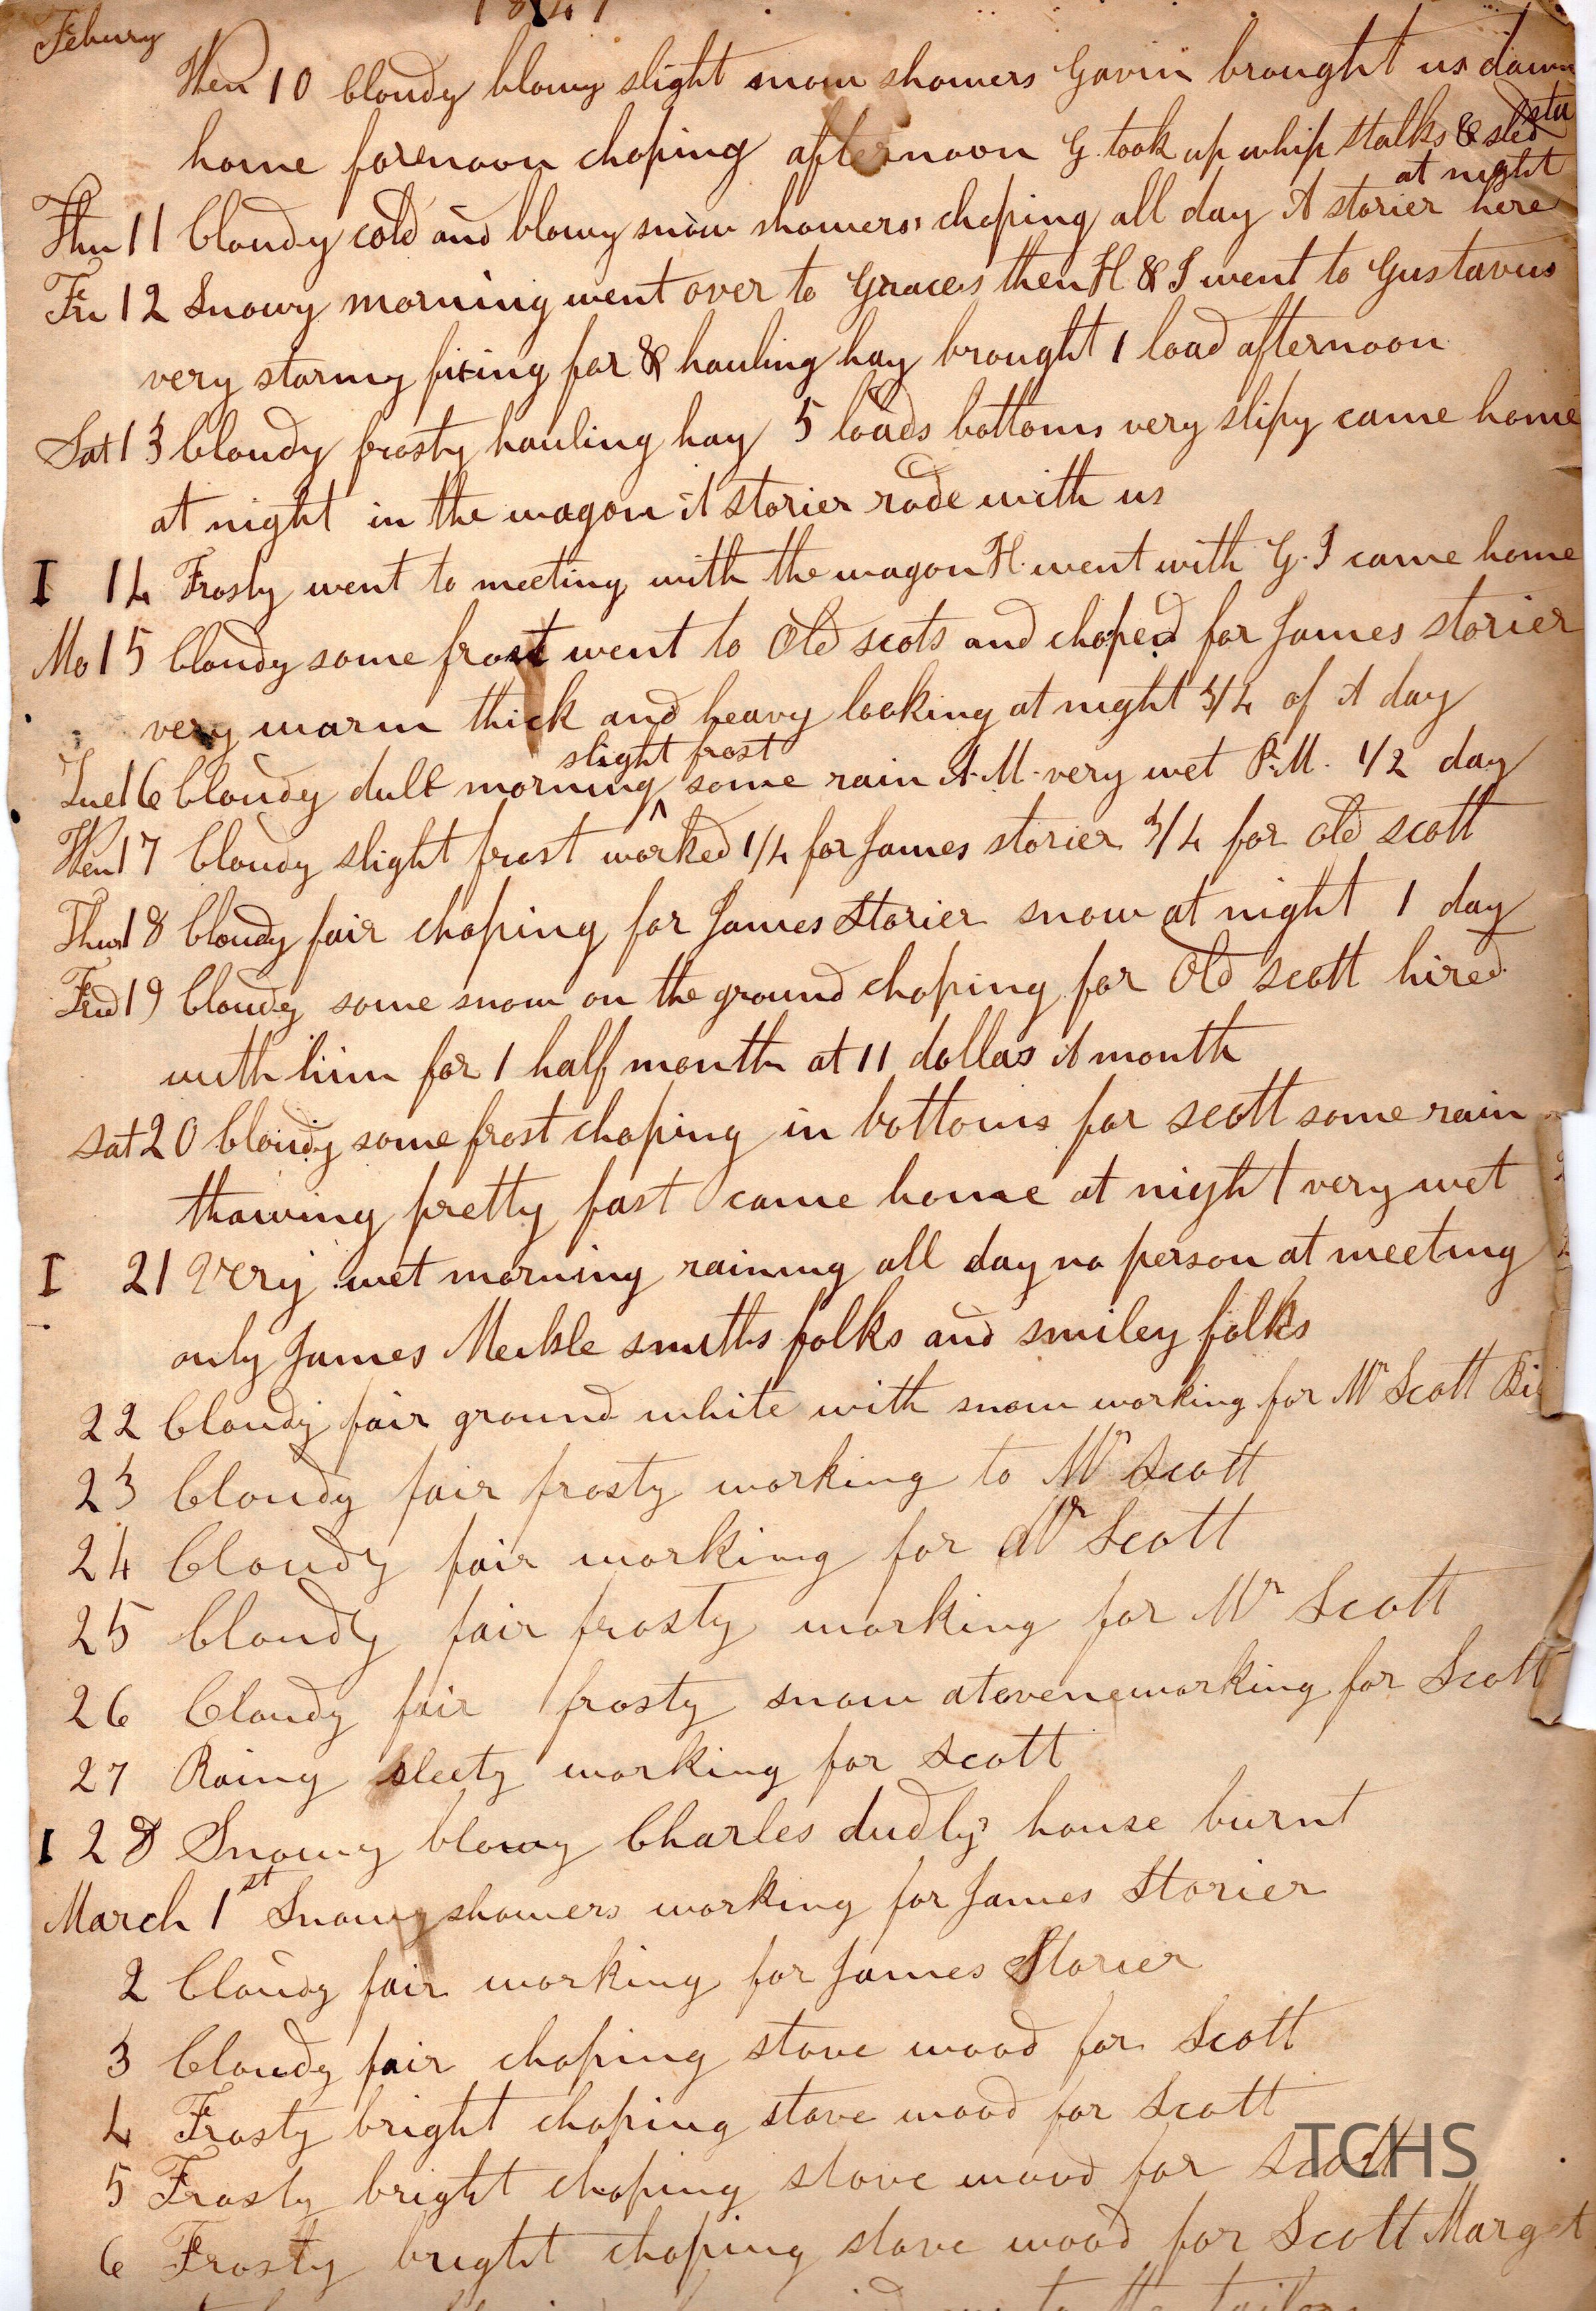 1841
Febury
Wen 10 Cloudy blowy slight snow showers Gavin brought us down
home forenoon choping afternoon G. took up whip stalks & sled
at night
Thu 11 Cloudy cold and blowy snow showers choping all day A storier here
Fri 12 Snowy morning went over to Graces then H & I went to Gustavus
very stormy fixing for & hauling hay brought 1 load afternoon
Sat 13 Cloudy frosty hauling hay 5 loads bottoms very slipy came home
at night in the wagon A storier rode with us
I 14 Frosty went to meeting with the wagon H. went with G. I came home
Mo 15 Cloudy some frost went to Old scots and choped for James storier
very warm thick and heavy looking at night 3/4 of A day
slight frost
Tue 16 Cloudy dull morning ^ some rain A.M. very wet P.M. 1/2 day
Wen 17 Cloudy slight frost worked 1/4 for James storier 3/4 for Old scott
Thur 18 Cloudy fair choping for James Storier snow at night 1 day
Frid 19 Cloudy some snow on the ground choping for Old scott hired
with him for 1 half month at 11 dollas A month
Sat 20 Cloudy some frost choping in bottoms for scott some rain
thawing pretty fast came home at night very wet
I 21 Very wet morning raining all day no person at meeting
only James Meikle smiths folks and smiley folks
22 Cloudy fair ground white with snow working for Mr Scott
23 Cloudy fair frosty working to Mr Scott
24 Cloudy fair working for Mr Scott
25 Cloudy fair frosty working for Mr Scott
26 Cloudy fair frosty snow at evene working for Scott
27 Rainy sleety working for Scott
I 28 Snowy blowy Charles dudlys house burnt
March 1st Snowy showers working for James Storier
2 Cloudy fair working for James Storier
3 Cloudy fair choping stove wood for Scott
4 Frosty bright choping stove wood for Scott
5 Frosty bright choping stove wood for Scott
6 Frosty bright choping stove wood for Scott Margt
to the tailors
TCHS